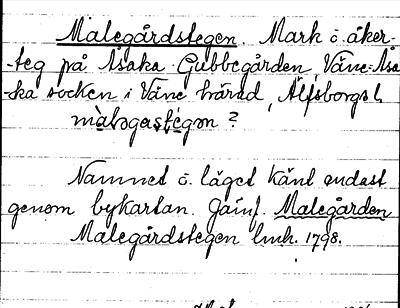 Malegårdstegen. Mark ö. åker-
-teg på Åsaka Gubbegården, Väne-Åsa-
-ka socken i Väne härad, Älfsborgs l.
màlǝgastégǝn?
Namnet ö. läget känt endast
genom bykartan. Jämf. Malegården
Malegårdstegen lmh. 1798.